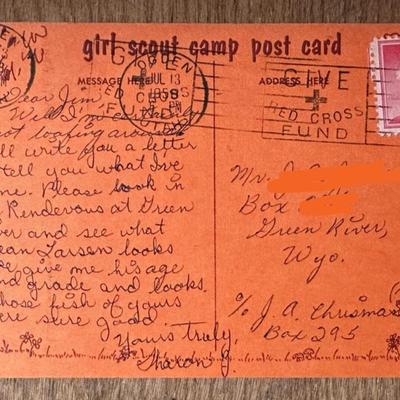 girl scout camp post card
MESSAGE HERE
ADDRESS HERE
OGDEN
JUL 13
1959
PM
GIVE
RED CROSS
FUND
GIVE
RED CROSS
FUND
Dear Jim,
Well I'm
not loafing around
I'll write you a letter
tell you what I've
Please look in
Rendevous at Green
and see what
Larsen looks
give me his age
and grade and looks.
those fish of yours
were sure good
Yours truly,
Sharon J.
Mr. J.
Box
Green River,
Wyo.
c/o J. A. Chrisman
Box 295